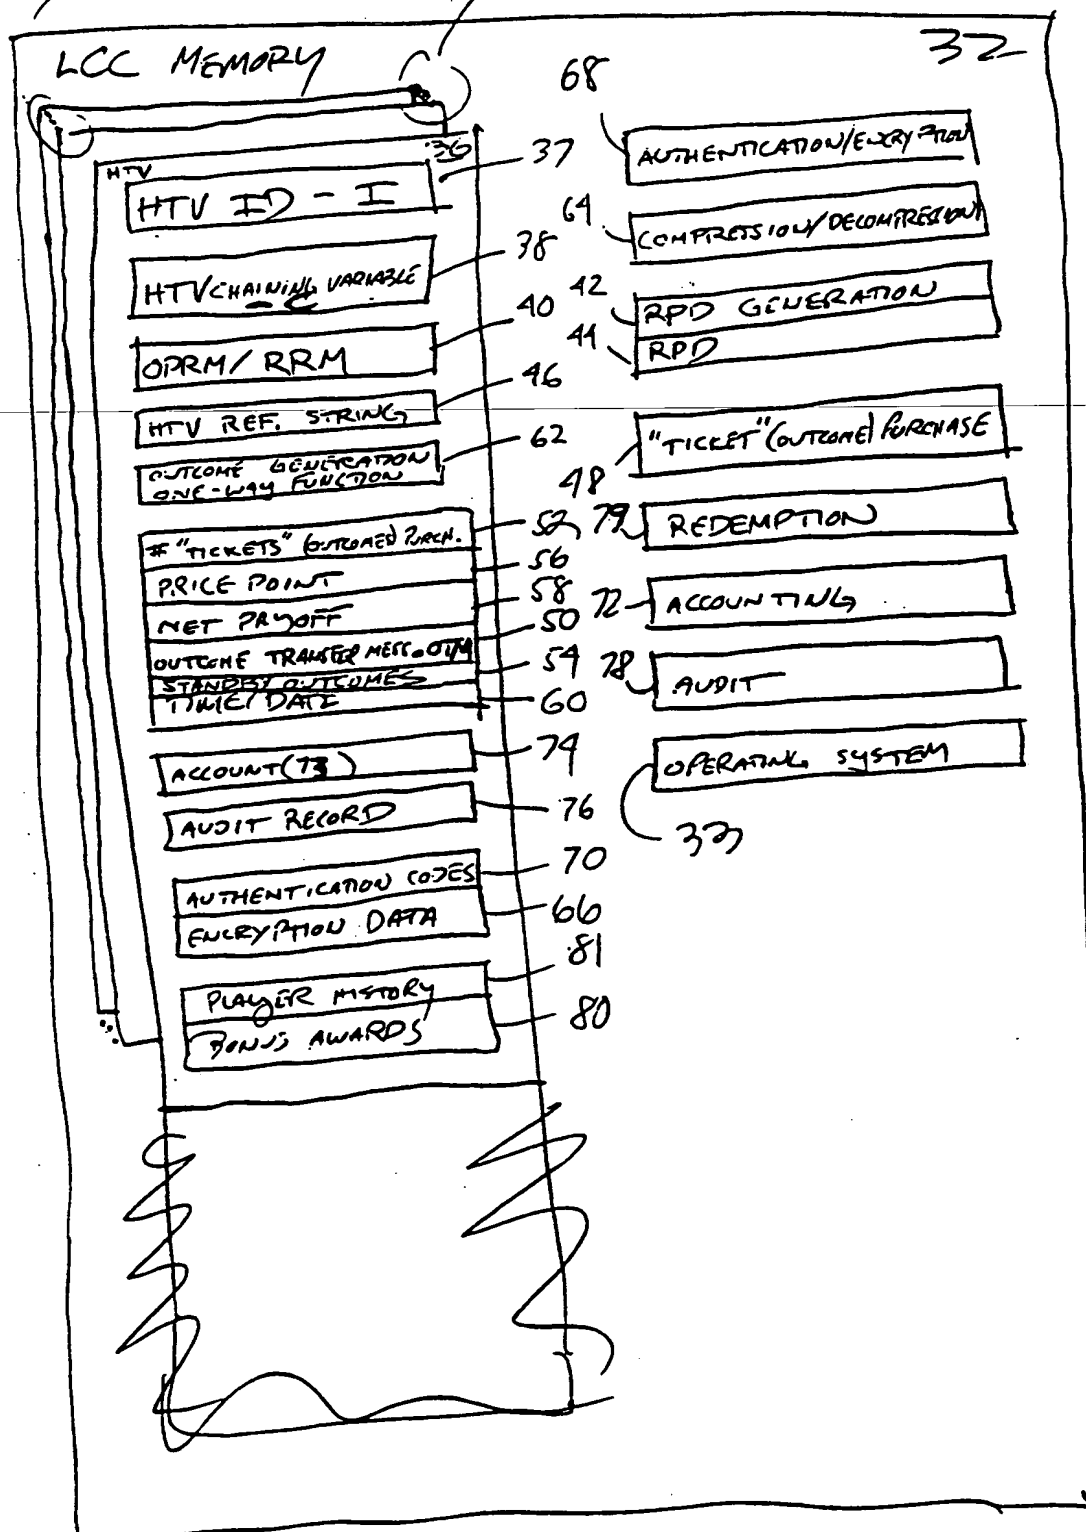 LCC MEMORY
32
HTV
36
HTV ID - I
37
HTV CHAINING VARIABLE
38
OPRM/RRM
40
HTV REF. STRING
46
OUTCOME GENERATION
ONE-WAY FUNCTION
62
# "TICKETS" (OUTCOMES) PURCH.
52
PRICE POINT
56
NET PAYOFF
58
OUTCOME TRANSFER MESS. OTM
50
STANDBY OUTCOMES
54
TIME/DATE
60
ACCOUNT (73)
74
AUDIT RECORD
76
AUTHENTICATION CODES
70
ENCRYPTION DATA
66
PLAYER HISTORY
81
BONUS AWARDS
80
68
AUTHENTICATION/ENCRYPTION
64
COMPRESSION/DECOMPRESSION
42
RPD GENERATION
44
RPD
"TICKET" (OUTCOME) PURCHASE
48
79
REDEMPTION
72
ACCOUNTING
78
AUDIT
OPERATING SYSTEM
33